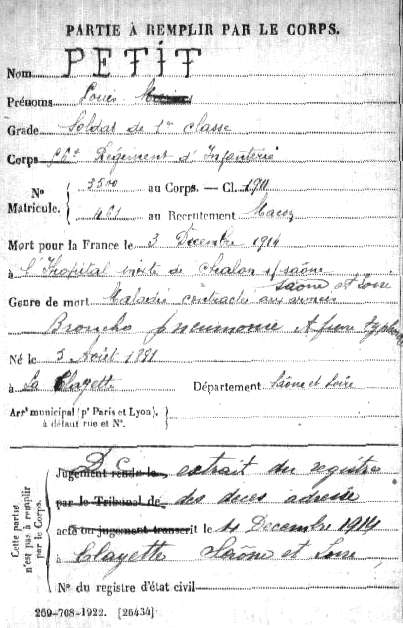 PARTIE À REMPLIR PAR LE CORPS.
Nom PETIT
Prénoms Louis
Grade Soldat de 1re classe
Corps 56e Régiment d'Infanterie
Nº Matricule. { 3500 au Corps. — Cl. 1911
461 au Recrutement Macon
Mort pour la France le 3 Décembre 1914
à l'Hopital mixte de Chalon s/saône
Saône et Loire
Genre de mort Maladie contractée aux armées
Broncho pneumonie et fièvre typhoïde
Né le 3 Août 1891
à La Clayette Département Saône et Loire
Arrt municipal (pr Paris et Lyon), à défaut rue et Nº.
Cette partie n'est pas à remplir par le Corps.
Jugement rendu le D. C. extrait du registre
par le Tribunal de des décès adressé
acte ou jugement transcrit le 11 Décembre 1914
à Clayette Saône et Loire
Nº du registre d'état civil
269-708-1922. [26434]